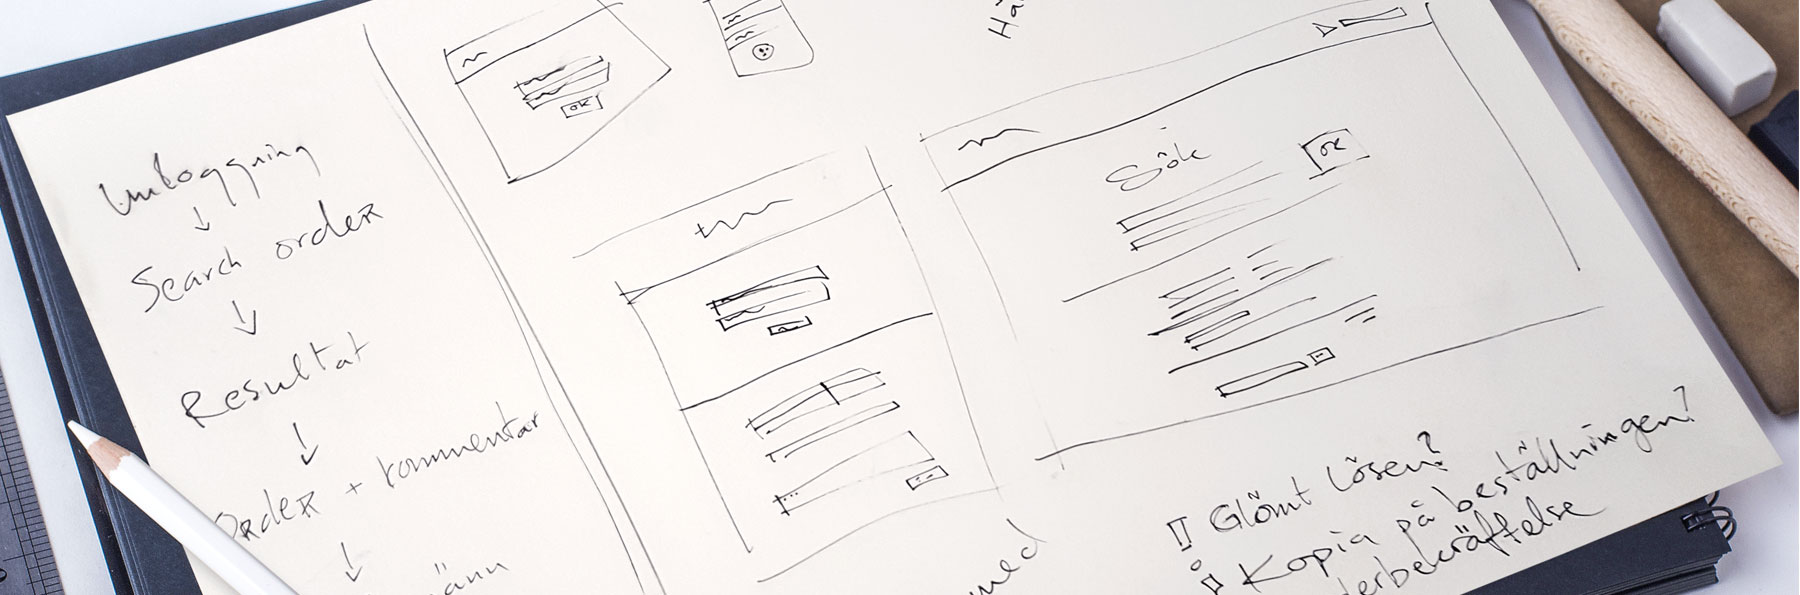 Inloggning
↓
Search order
↓
Resultat
↓
Order + kommentar
↓
OK
Hä
Sök
OK
med
Glömt lösen?
Kopia på beställningen?
derbekräftelse